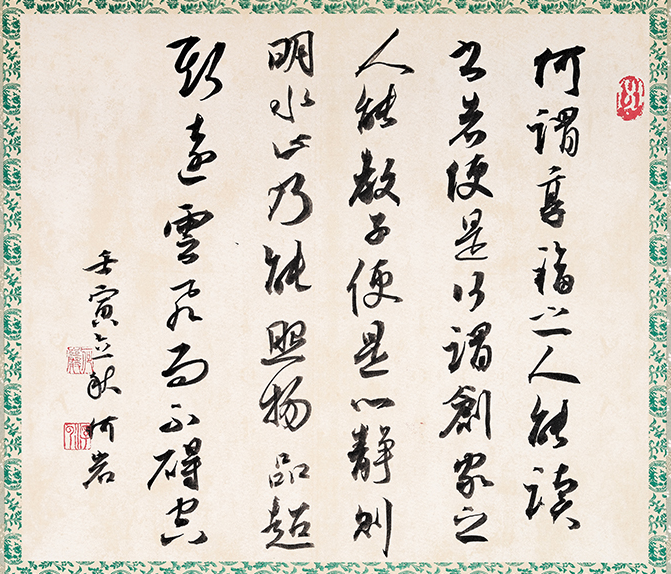 何謂享福之人能讀
书者便是何謂創家之
人能教子便是心静則
明水止乃能照物品超
斯遠雲飛而不碍空
壬寅立秋何岩